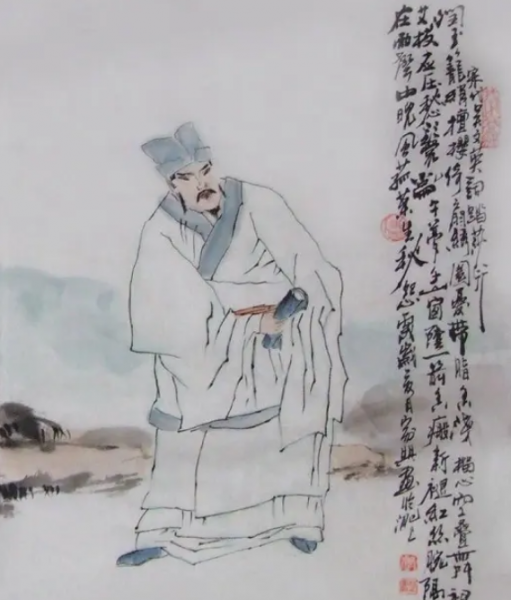 宋代吴文英词踏莎行
润玉籠绡檀樱倚扇绣圈憂带脂香浅榴心空叠舞裙
艾枝应压愁鬟午梦千山窗阴一箭香瘢新褪红丝腕隔
在雨声中晚风菰叶生秋怨岁月画